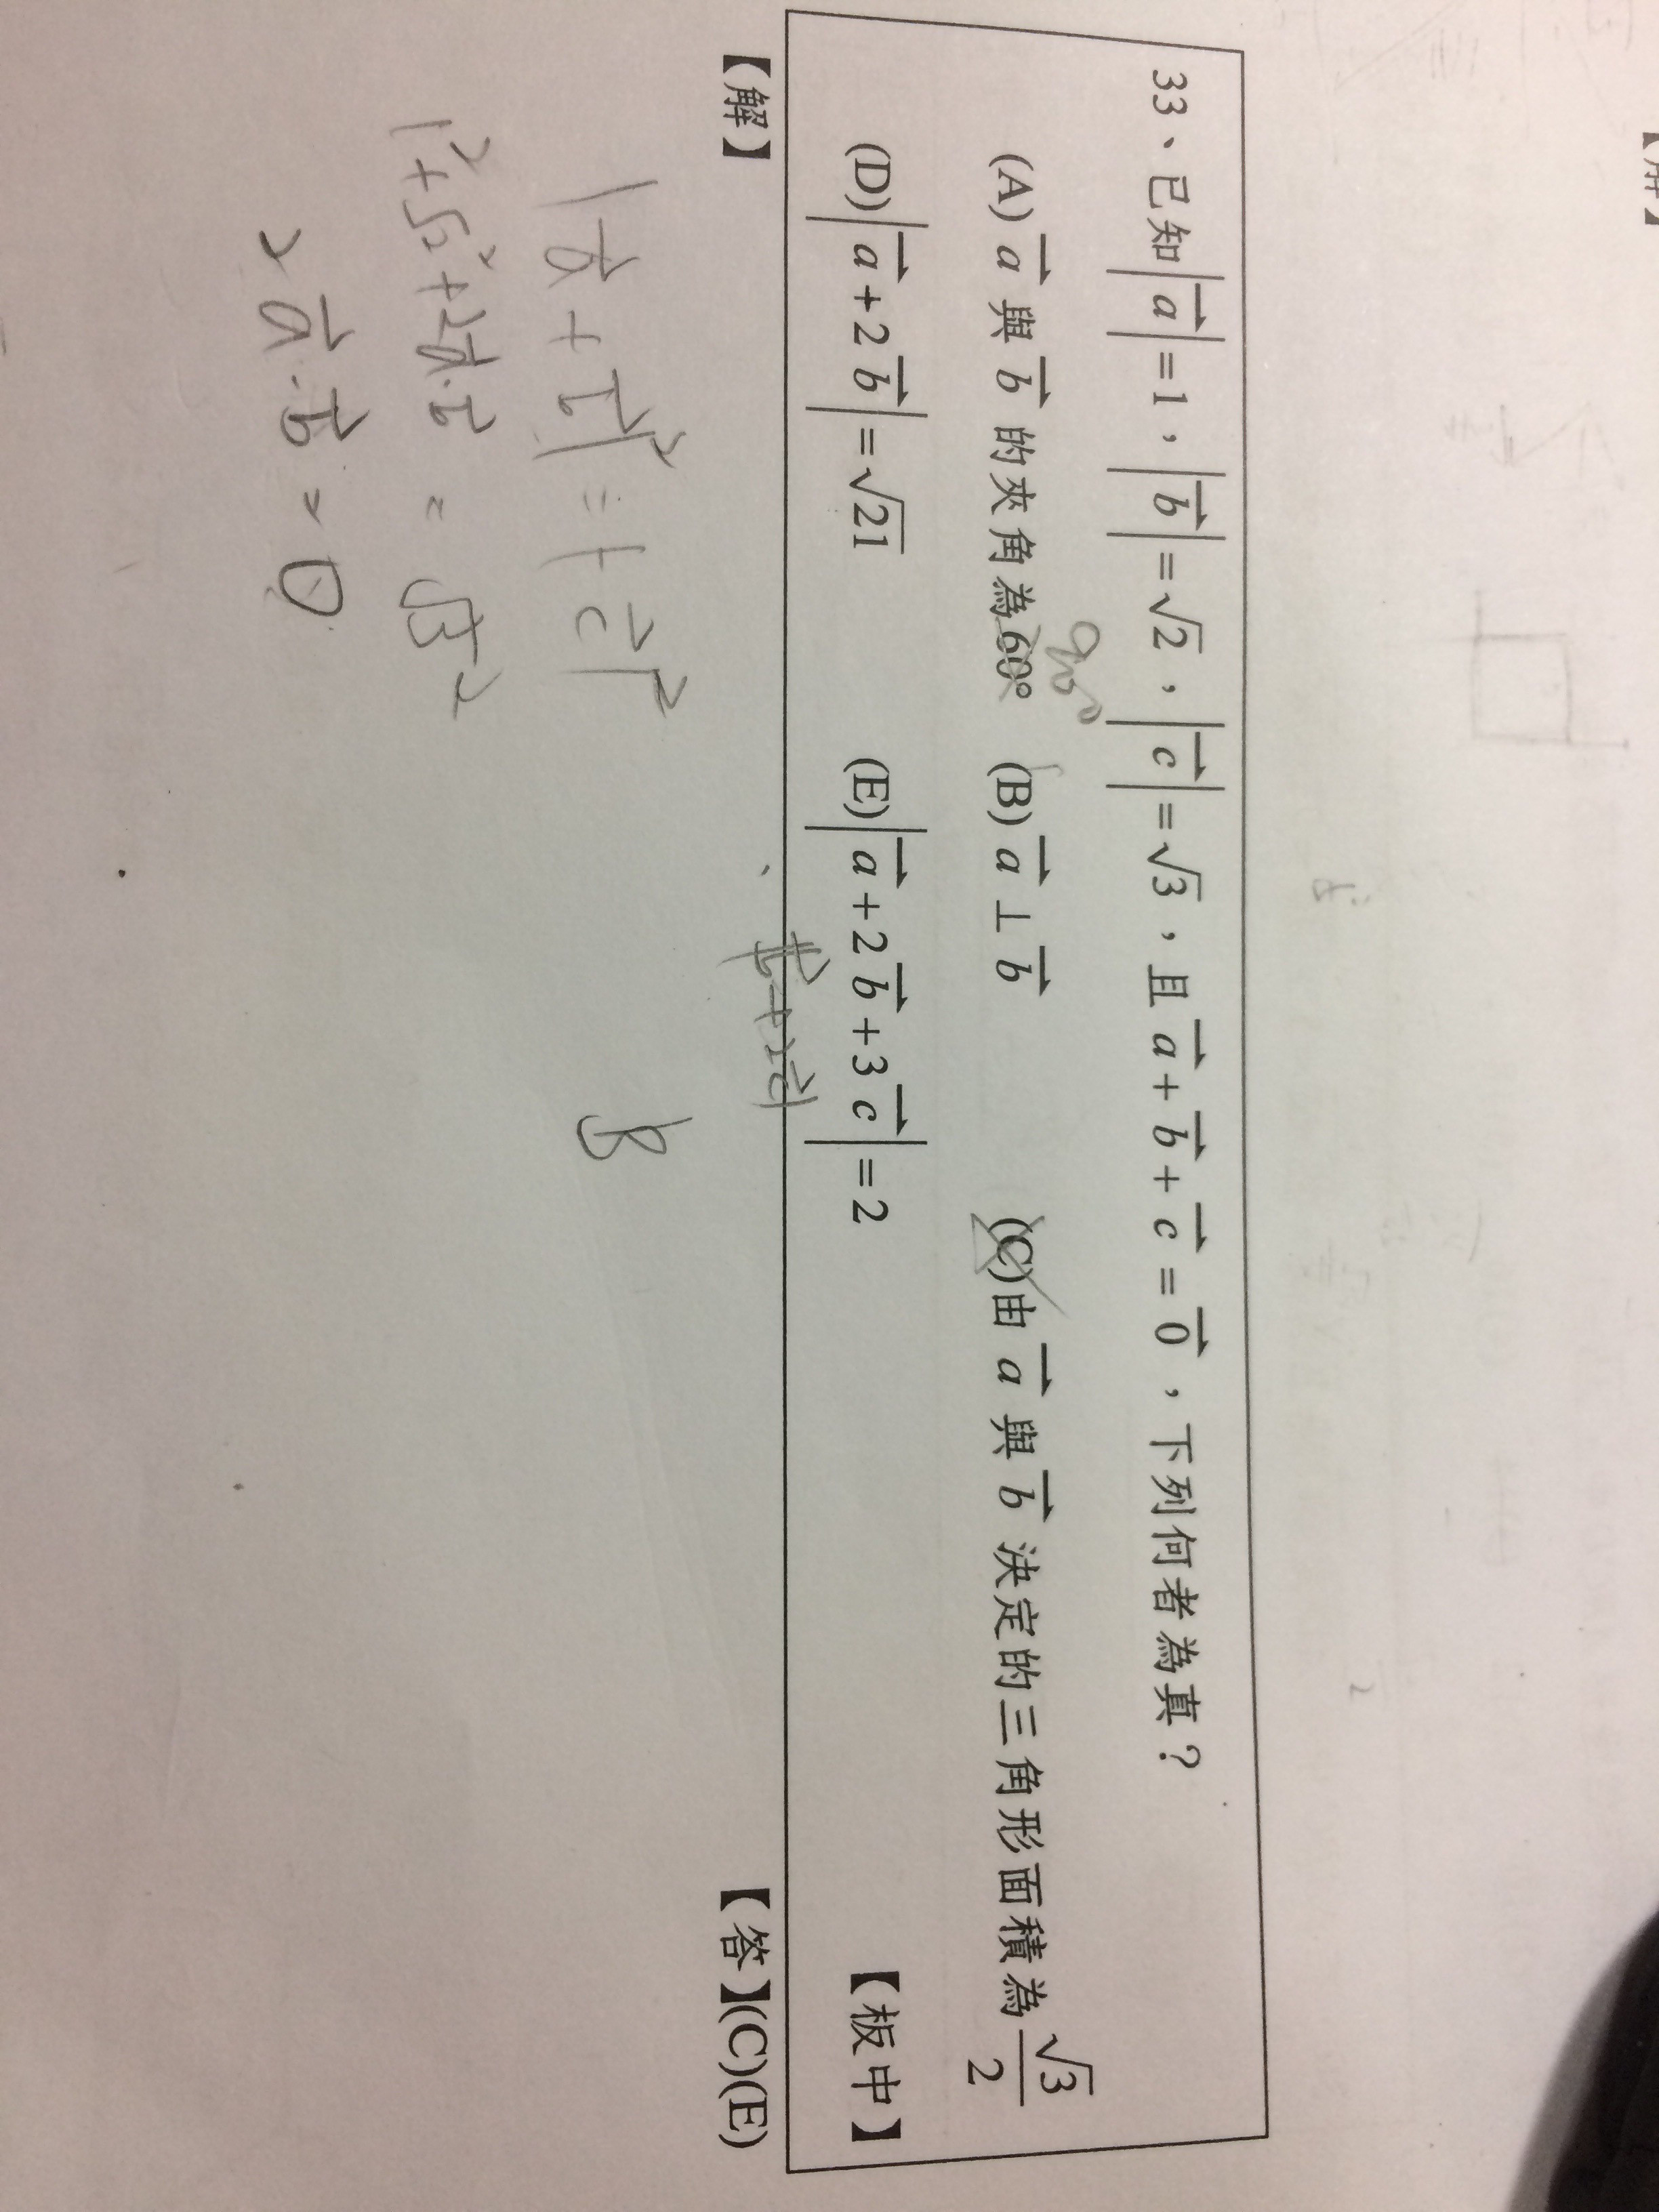 33、已知|a⃗|=1，|b⃗|=√2，|c⃗|=√3，且a⃗+b⃗+c⃗=0⃗，下列何者為真？
(A) a⃗ 與 b⃗ 的夾角為60° 90° (B) a⃗⊥b⃗ (C)由 a⃗ 與 b⃗ 決定的三角形面積為 √3/2
(D)|a⃗+2b⃗|=√21 (E)|a⃗+2b⃗+3c⃗|=2 【板中】
【解】 【答】(C)(E)
|a⃗+b⃗|²=|c⃗|²
1²+√2²+2a⃗·b⃗=√3²
2a⃗·b⃗=0